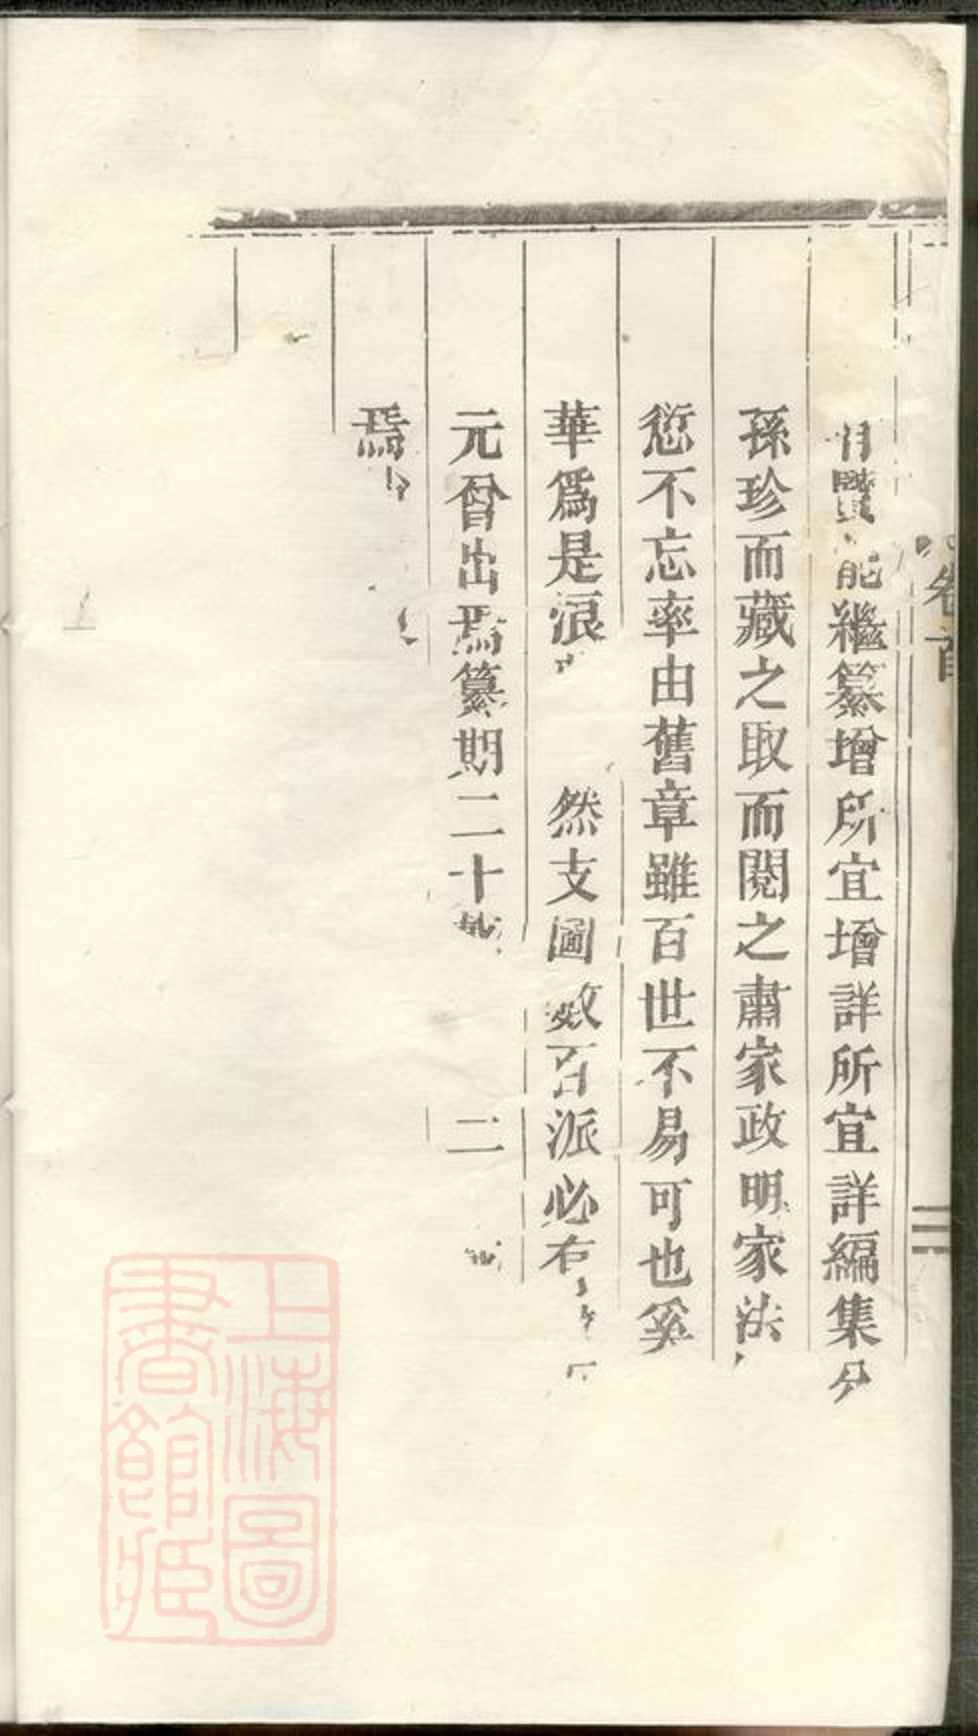 卷首
二
賢能繼纂增所宜增詳所宜詳編集
孫珍而藏之取而閱之肅家政明家法
愆不忘率由舊章雖百世不易可也奚
華爲是浪然支圖數百派必有
元曾出焉纂期二十二
焉
上海圖書館藏